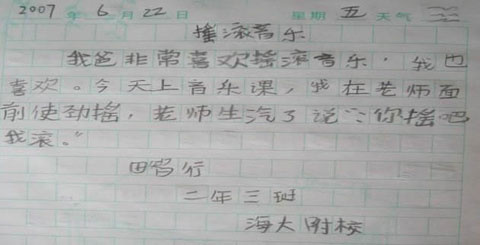 2007年6月22日 星期五 天气
摇滚音乐
我爸非常喜欢摇滚音乐，我也
喜欢。今天上音乐课，我在老师面
前使劲摇，老师生汽了说：“你摇吧
我滚。”
田智行
二年三班
海大附校